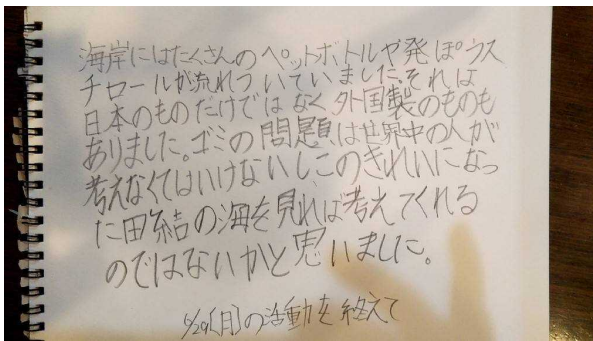 海岸にはたくさんのペットボトルや発ぽうス
チロールが流れついていました。それは
日本のものだけではなく外国製のものも
ありました。ゴミの問題は世界中の人が
考えなくてはいけないしこのきれいになっ
た田結の海を見れば考えてくれる
のではないかと思いました。
6/29(月)の活動を終えて